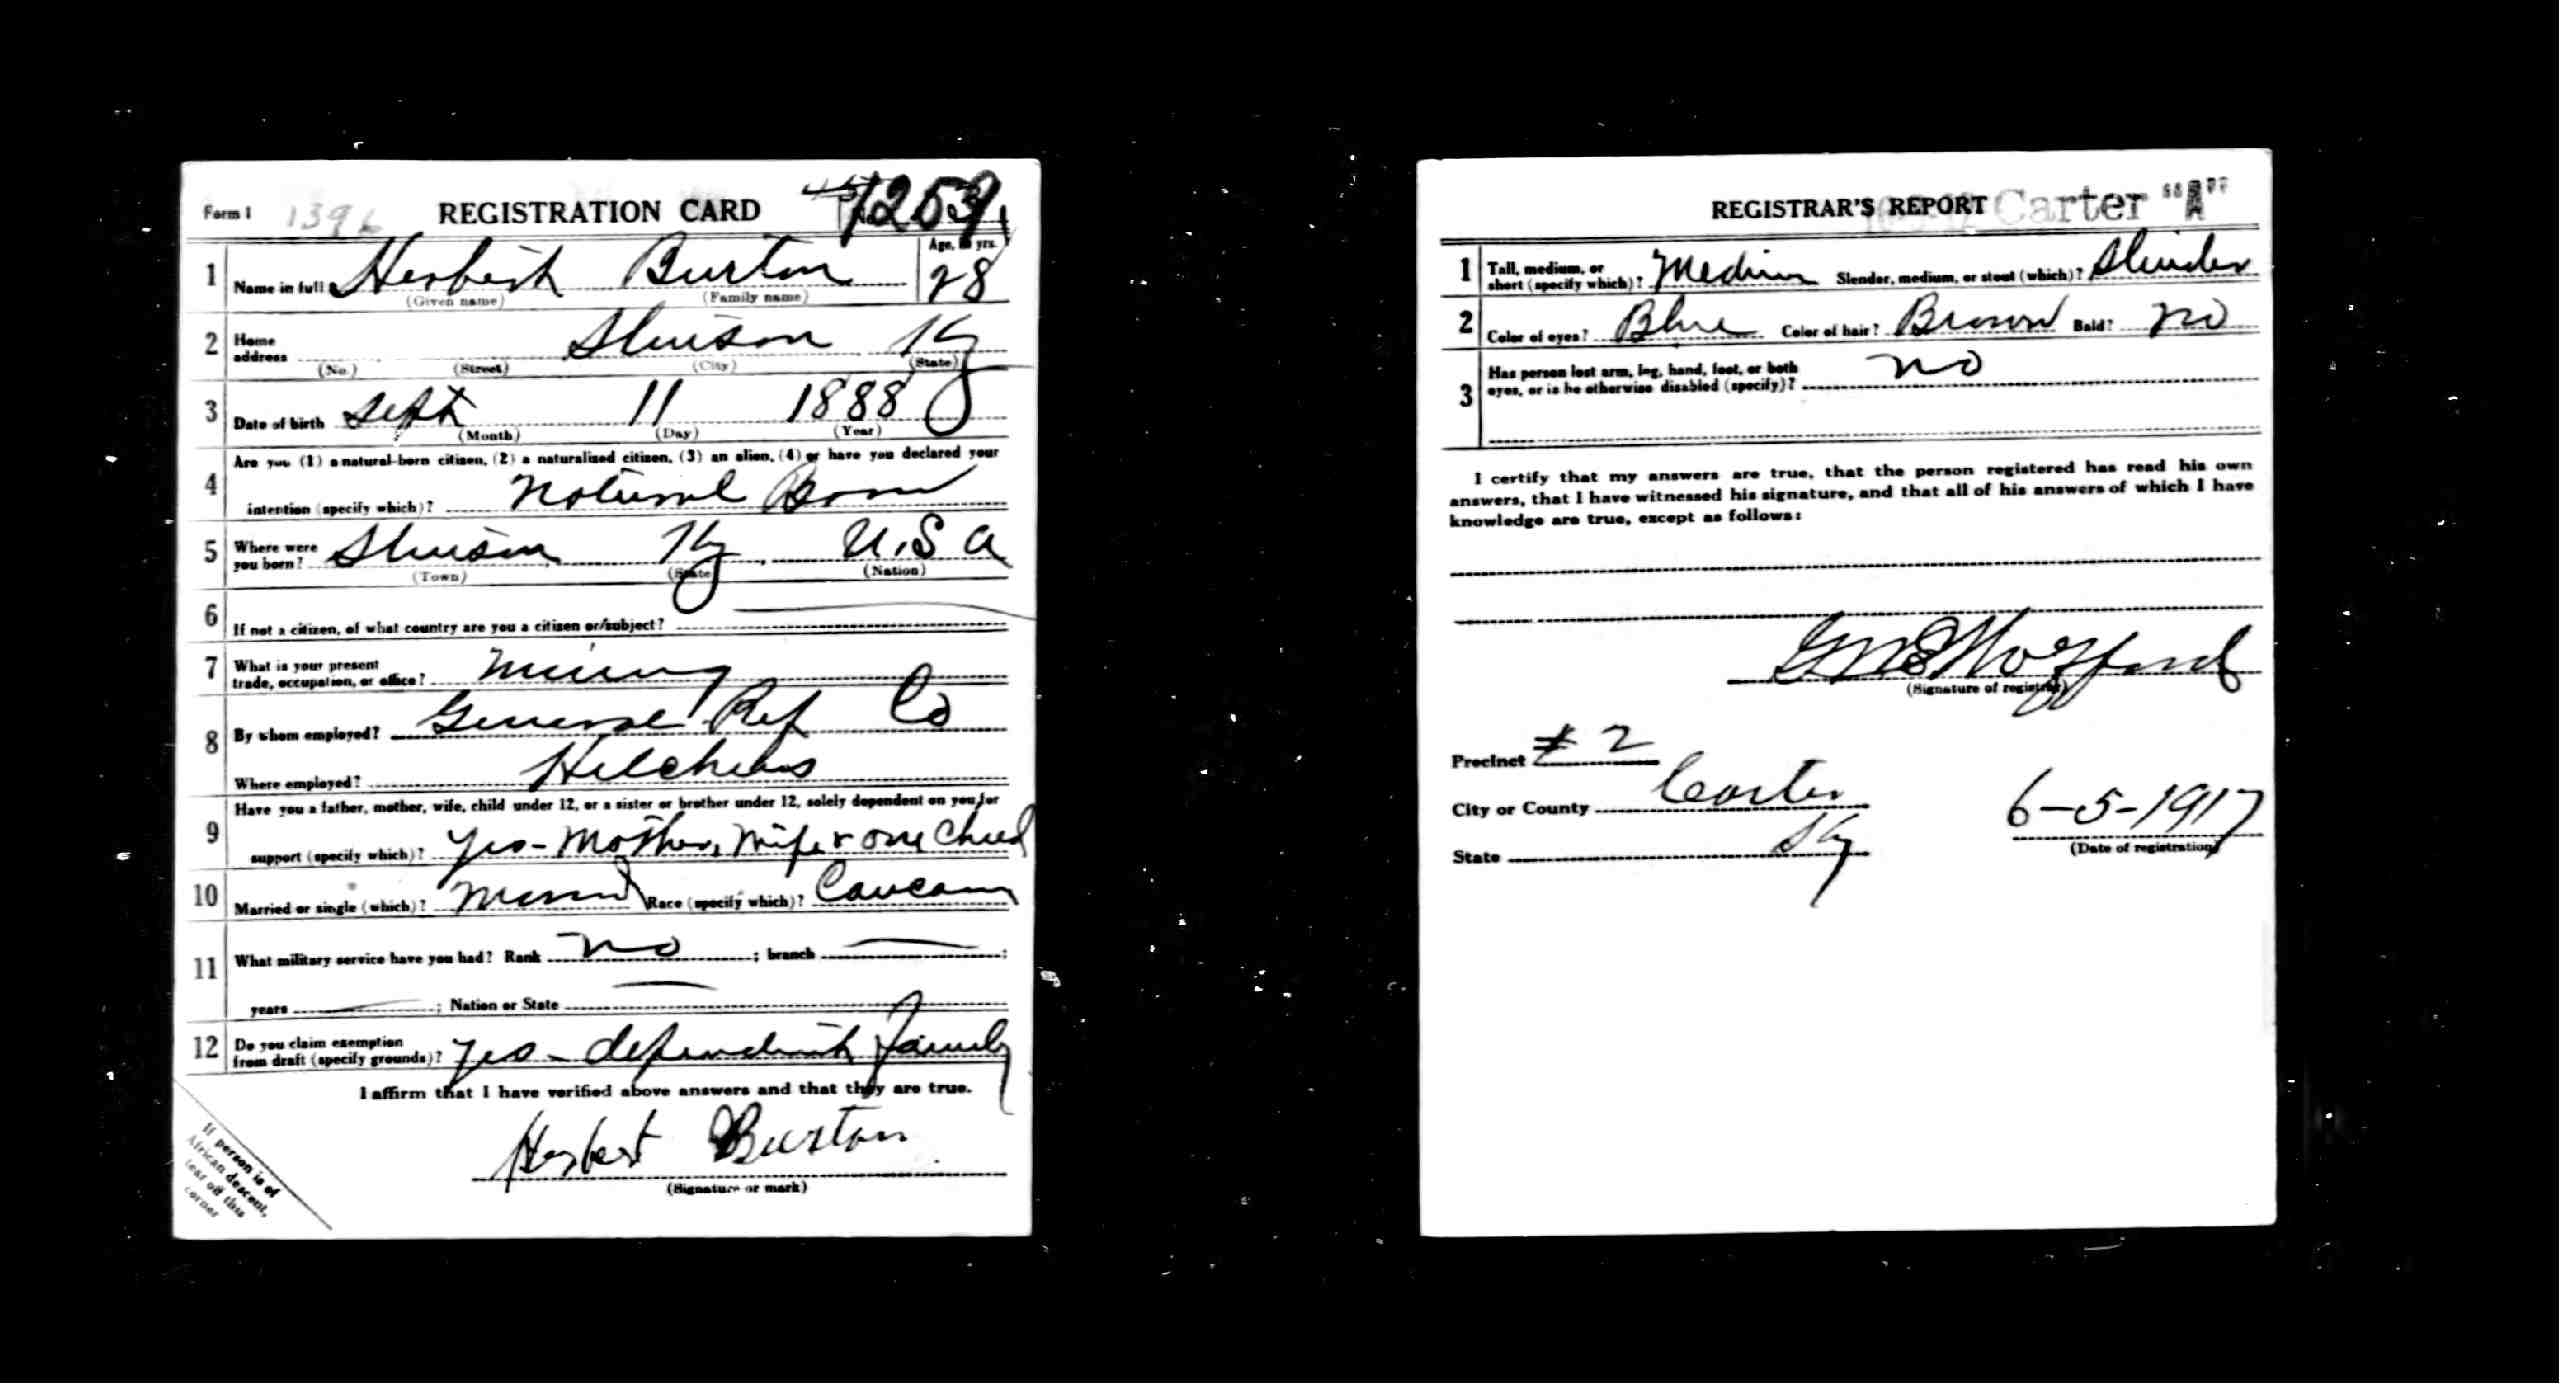 Form 1 1396 REGISTRATION CARD 1259
1 Name in full Herbert Burton Age, in yrs. 28
(Given name) (Family name)
2 Home address Ky
(No.) (Street) (City) (State)
3 Date of birth Sept 11 1888
(Month) (Day) (Year)
4 Are you (1) a natural-born citizen, (2) a naturalized citizen, (3) an alien, (4) or have you declared your
intention (specify which)? Natural Born
5 Where were you born? Ky U.S a
(Town) (State) (Nation)
6 If not a citizen, of what country are you a citizen or subject?
7 What is your present trade, occupation, or office? Mining
8 By whom employed? General Ref Co
Where employed? Hitchins
9 Have you a father, mother, wife, child under 12, or a sister or brother under 12, solely dependent on you for
support (specify which)? Yes - Mother, Wife & one Child
10 Married or single (which)? Married Race (specify which)? Caucasian
11 What military service have you had? Rank no ; branch ;
years ; Nation or State
12 Do you claim exemption from draft (specify grounds)? Yes - dependent family
I affirm that I have verified above answers and that they are true.
Herbert Burton
(Signature or mark)
If person is of
African descent,
tear off this
corner
REGISTRAR'S REPORT Carter "A"
1 Tall, medium, or short (specify which)? Medium Slender, medium, or stout (which)? Slender
2 Color of eyes? Blue Color of hair? Brown Bald? no
3 Has person lost arm, leg, hand, foot, or both
eyes, or is he otherwise disabled (specify)? no
I certify that my answers are true, that the person registered has read his own
answers, that I have witnessed his signature, and that all of his answers of which I have
knowledge are true, except as follows:
Wofford
(Signature of registrar)
Precinct # 2
City or County Carter 6-5-1917
State Ky (Date of registration)